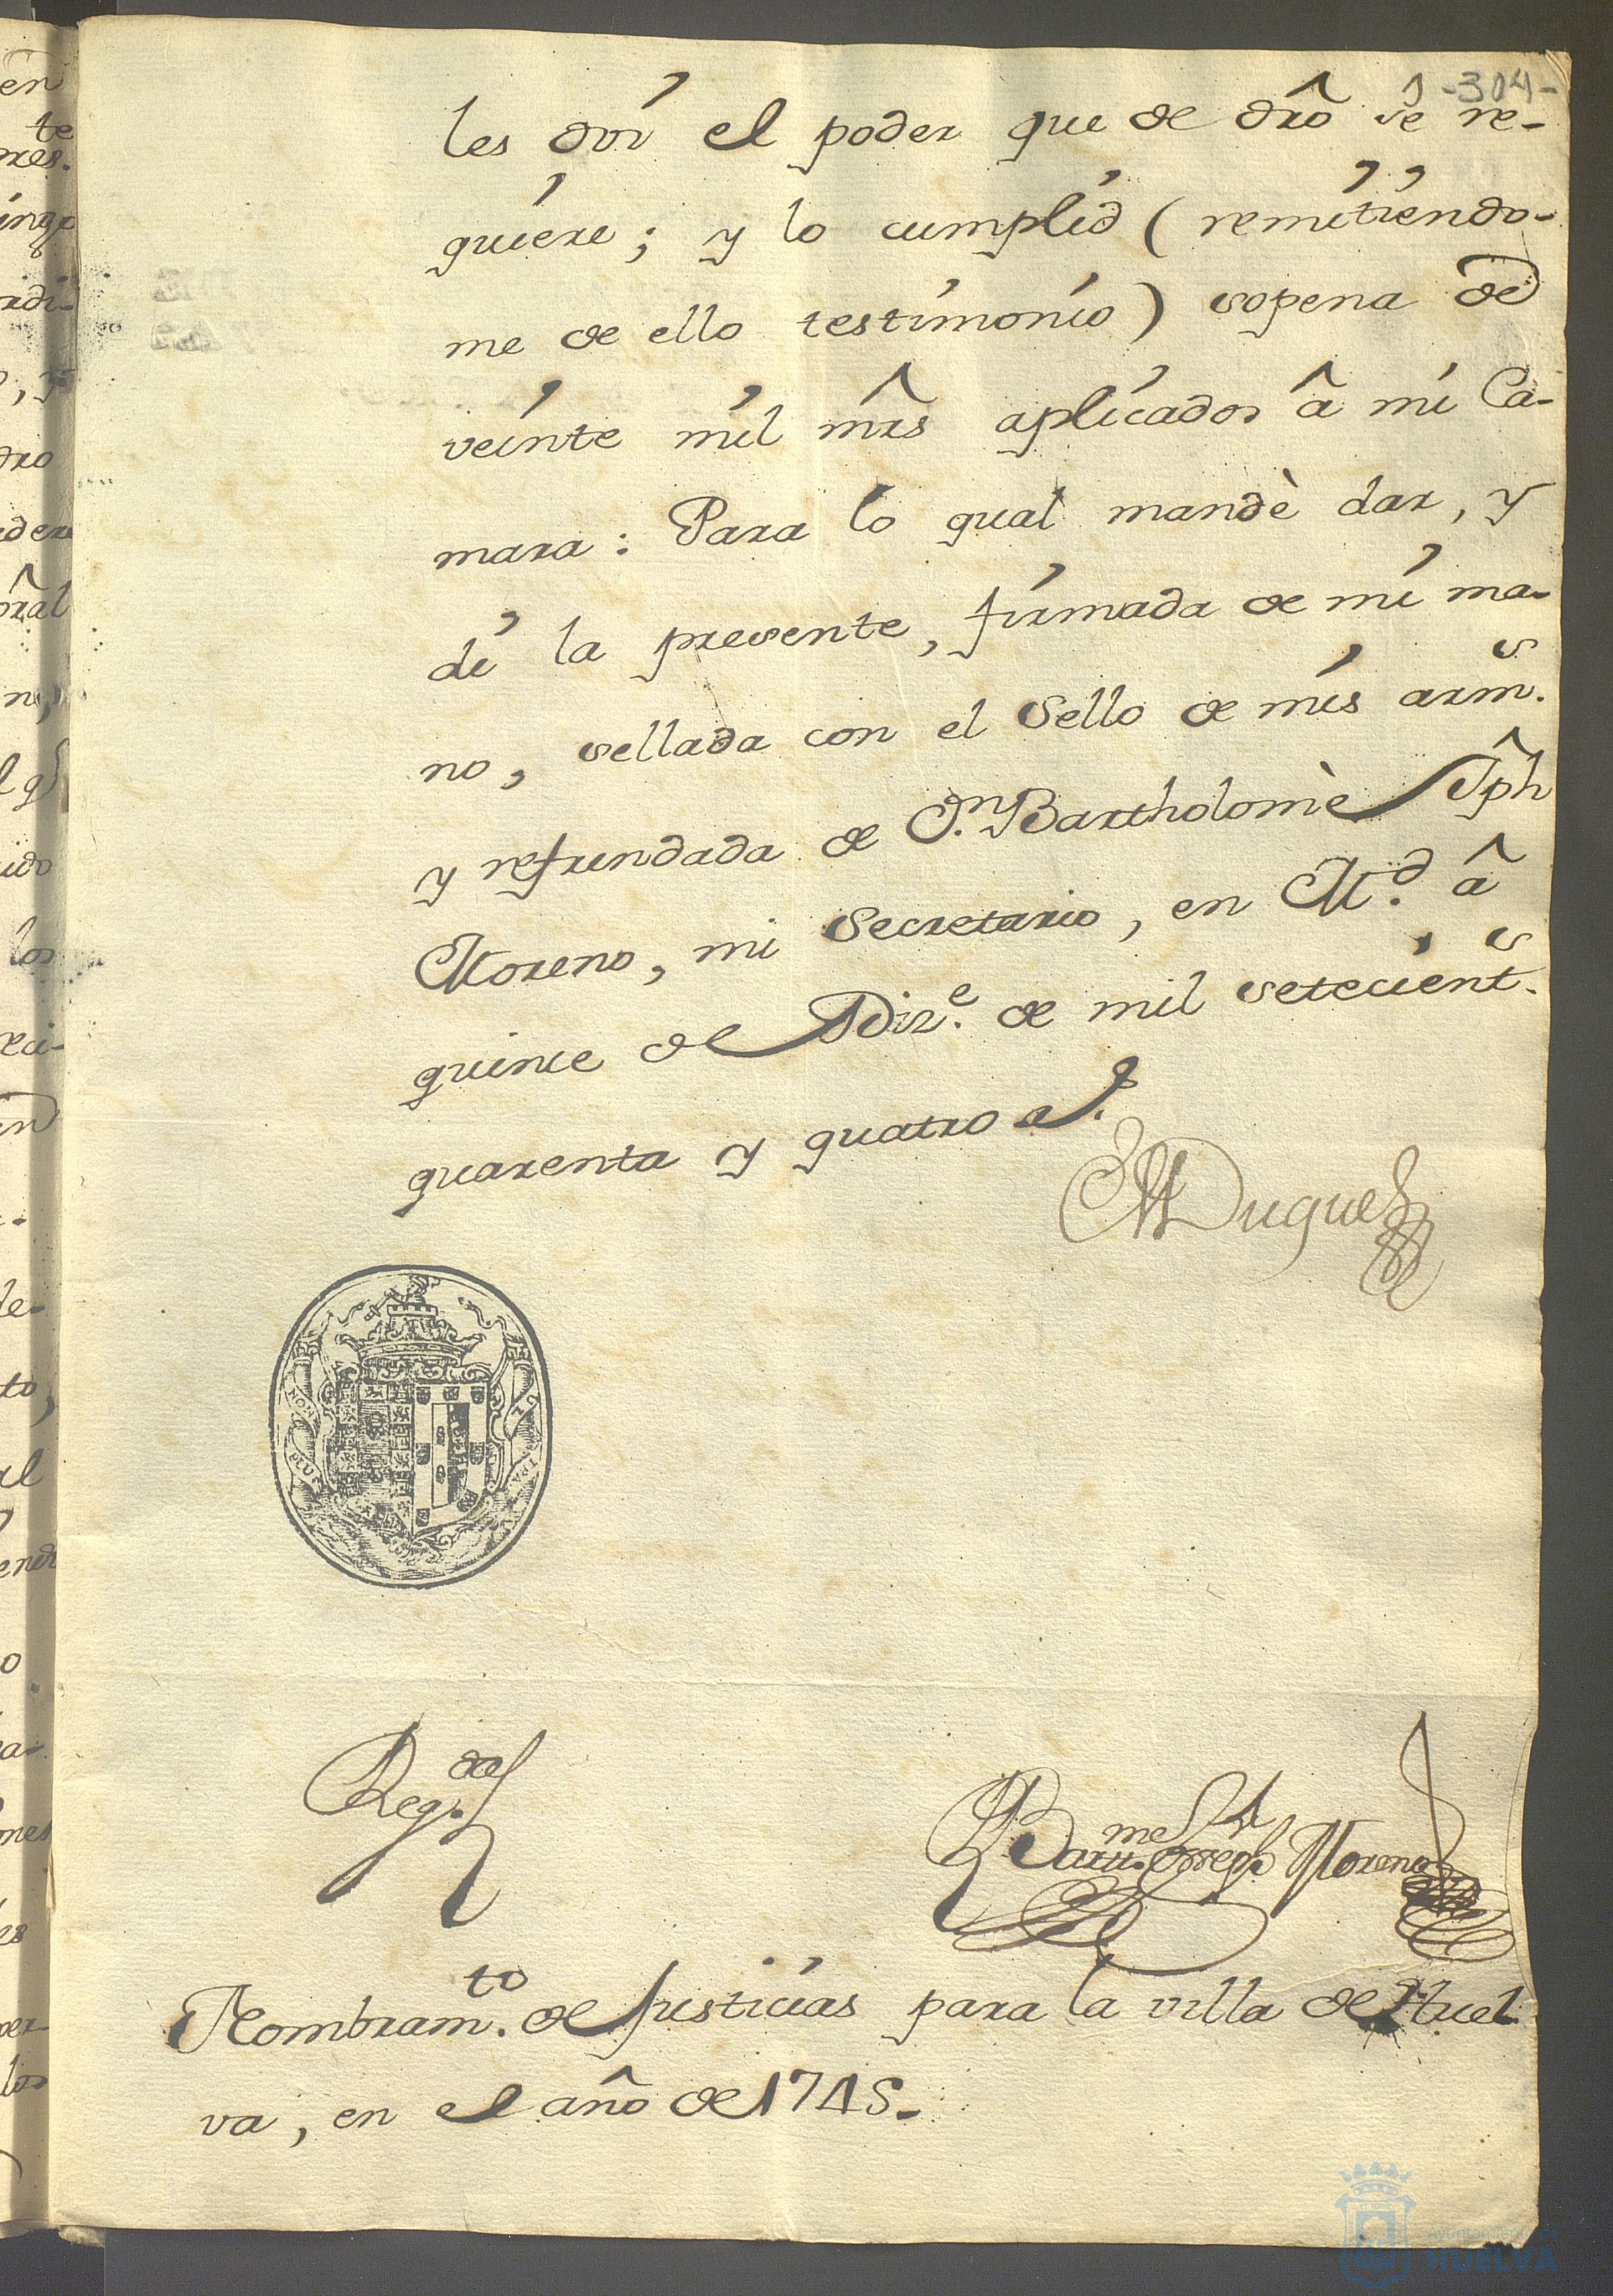 -304-
les doi el poder que de dro se re-
quiere; y lo cumplid (remitiendo-
me de ello testimonio) sopena de
veinte mil mrs aplicados â mi Ca-
mara: Para lo qual mandè dar, y
di la presente, firmada de mi ma-
no, sellada con el Sello de mis arm.s
y refrendada de D.n Bartholomè Jph
Moreno, mi Secretario, en M.d â
quince de Diz.e de mil setecient.s
quarenta y quatro a.s
El Duque
NON
PLUS
TRA
Reg.da
Bart.me Joseph Moreno
Nombram.to de Justicias para la villa de Huel
va, en el año de 1745.
Ayuntamiento de
HUELVA